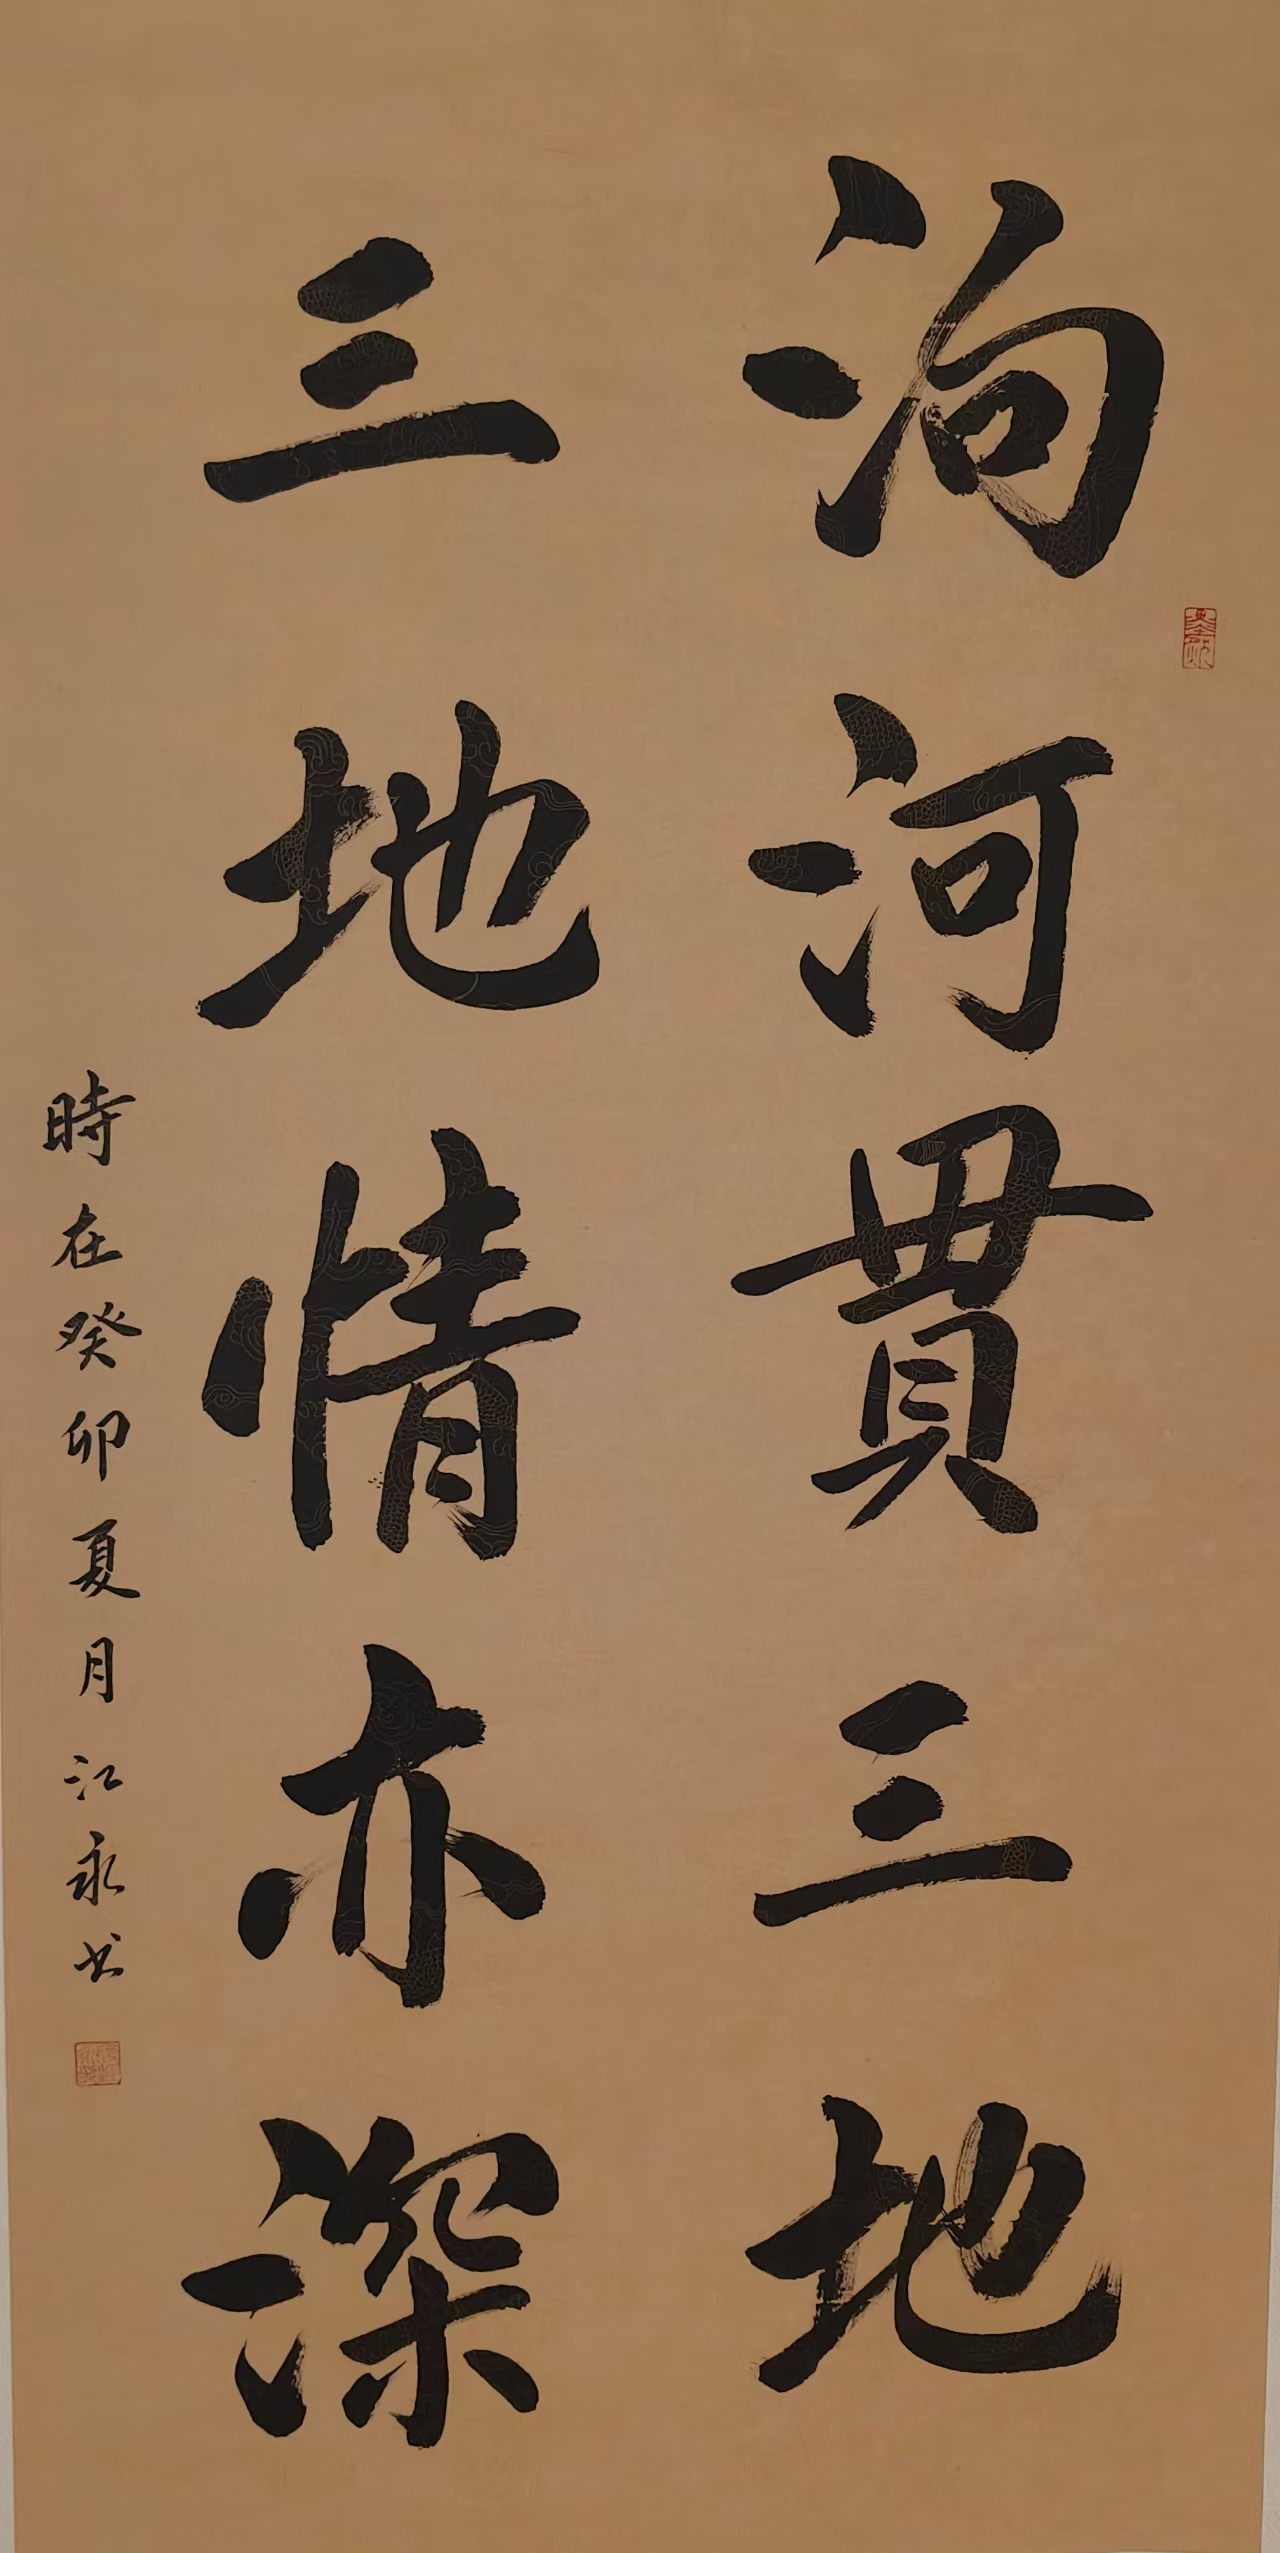 泃河貫三地
三地情亦深
時在癸卯夏月江永书